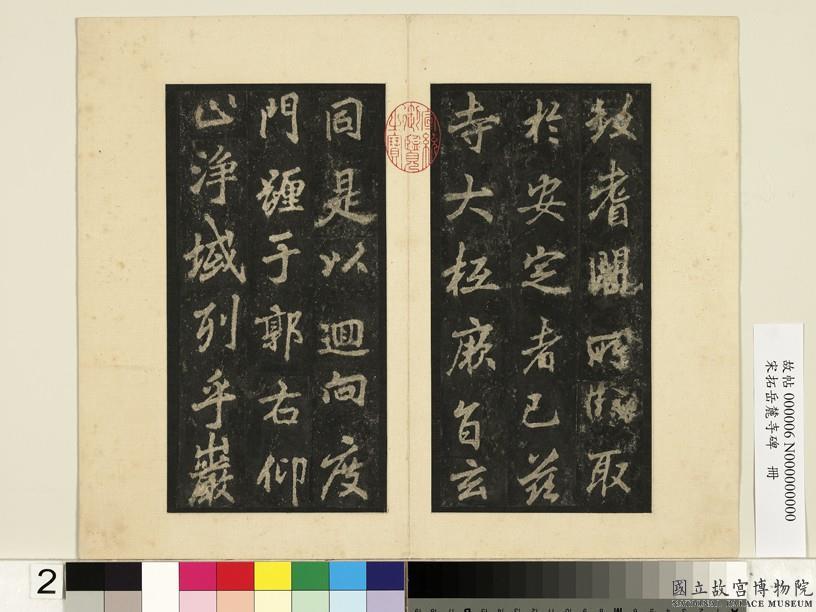 耆闍
取
於安定者已茲
寺大抵厥自玄
同是以迴向度
門纏于郭右仰
止淨域列乎巖
故帖 000006 N000000000
宋拓岳麓寺碑 冊
2
國立故宮博物院
NATIONAL PALACE MUSEUM